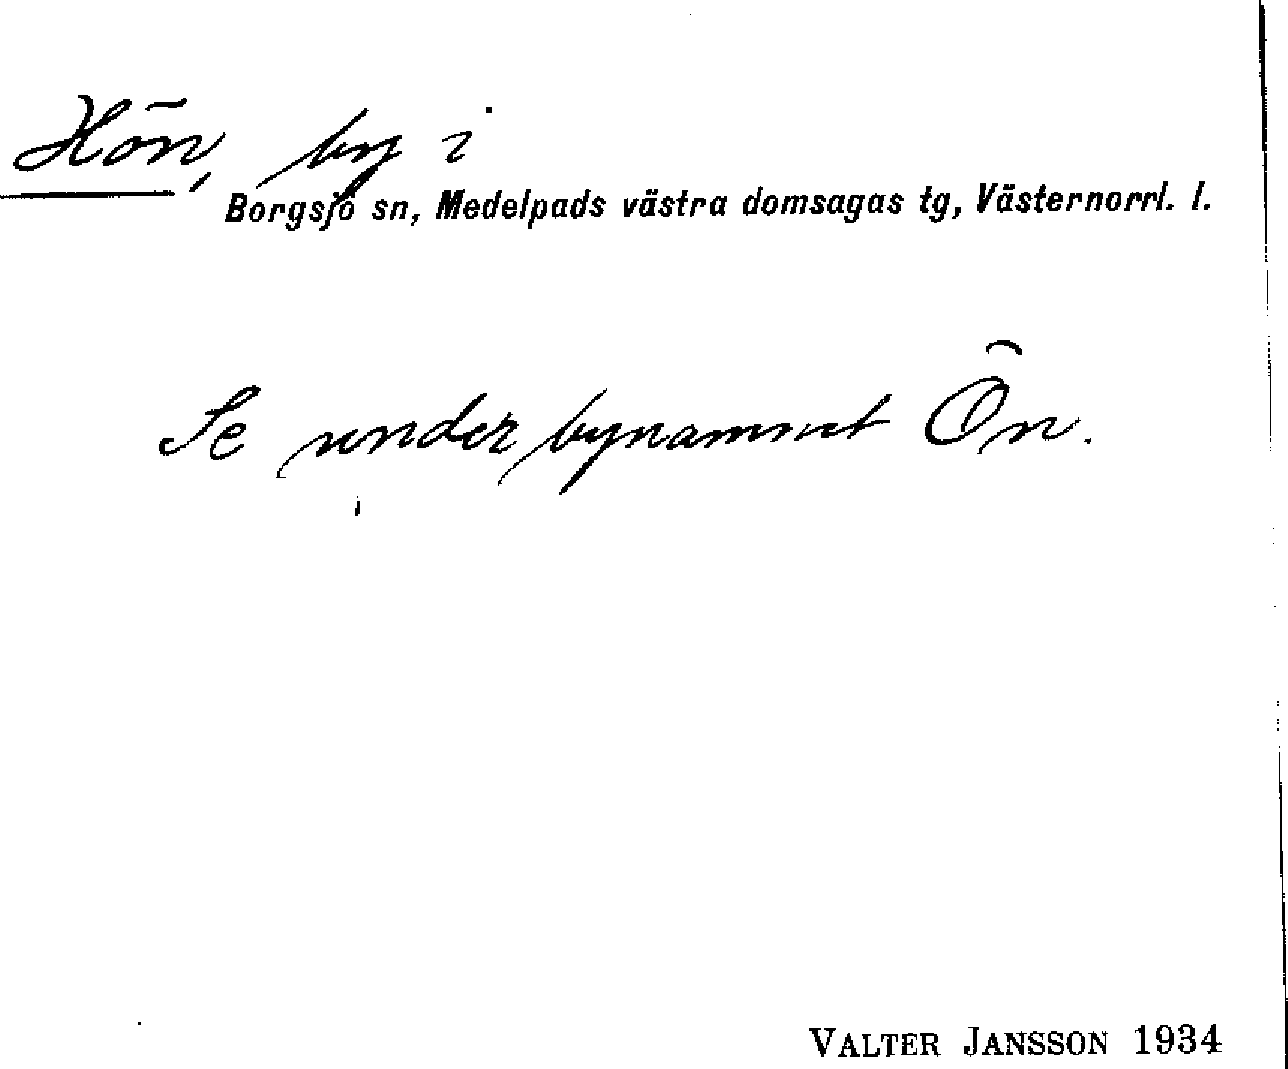 Hön, by i
Borgsjö sn, Medelpads västra domsagas tg, Västernorrl. l.
Se under bynamnet Ön.
VALTER JANSSON 1934